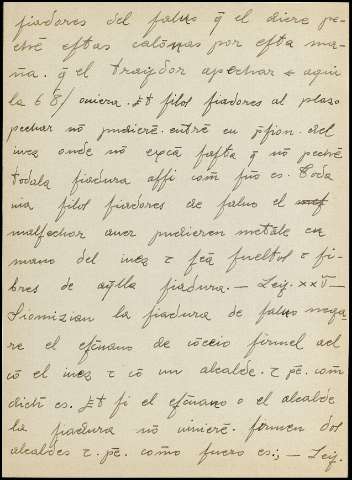 fiadores del faluo q̃ el diere pe-
chẽ estas calõnas por esta ma-
ña. q̃ el traydor apechar τ aqui
la 6 8/ oviera. Et filos fiadores al plazo
pechar nõ pudierẽ. entrẽ en p̃sion. del
iuez onde nõ exçã fasta q̃ nõ pechẽ
todala fiadura assi com̃ fuo es. Toda
uia filos fiadores de faluo el
malfechor auer pudieren metãle en
mano del iuez τ feã fueltos τ li-
bres de aq̃lla fiadura. — Ley. xxv —
Si omizian la fiadura de faluo nega-
re el efc̃uano de cõceio firmel ael
cõ el iuez τ cõ un alcalde. τ pẽ. com̃
dich̃ es. Et fi el efc̃uano o el alcalde
la fiadura nõ uinierẽ. firmen dos
alcaldes τ. pẽ. como fuero es; — Ley.